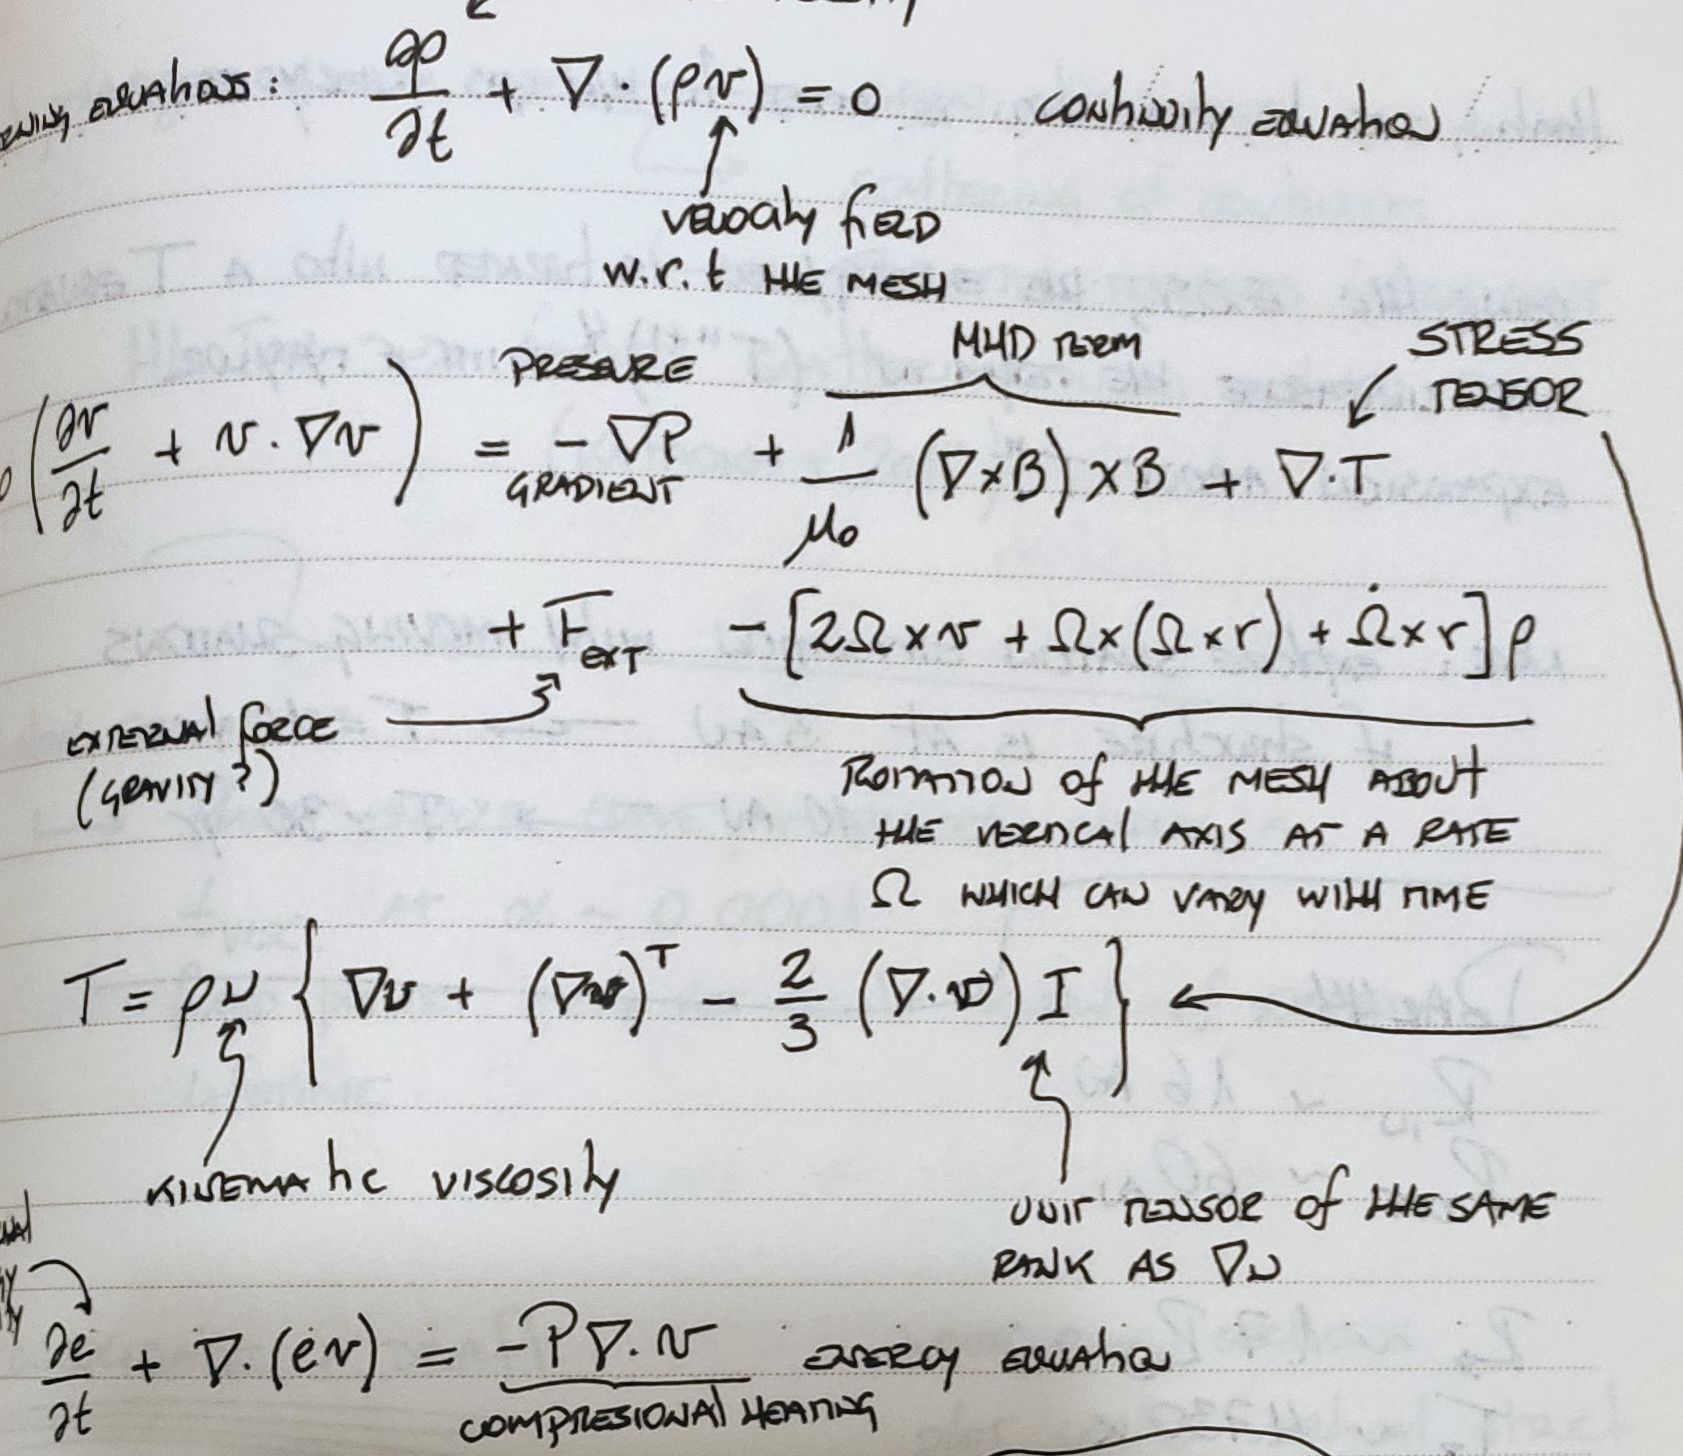 EQUATIONS: ∂ρ/∂t + ∇·(ρv) = 0 CONTINUITY EQUATION
VELOCITY FIELD
W.r.t THE MESH
MHD TERM
STRESS
TENSOR
PRESSURE
ρ(∂v/∂t + v·∇v) = -∇P + 1/μ₀ (∇×B)×B + ∇·T
GRADIENT
+ F_EXT - [2Ω×v + Ω×(Ω×r) + Ω̇×r]ρ
EXTERNAL FORCE
(GRAVITY?)
ROTATION of THE MESH ABOUT
THE VERTICAL AXIS AT A RATE
Ω WHICH CAN VARY WITH TIME
T = ρν { ∇v + (∇v)ᵀ - 2/3 (∇·v) I }
KINEMATIC VISCOSITY
UNIT TENSOR of THE SAME
RANK AS ∇v
∂e/∂t + ∇·(ev) = -P∇·v ENERGY EQUATION
COMPRESIONAL HEATING